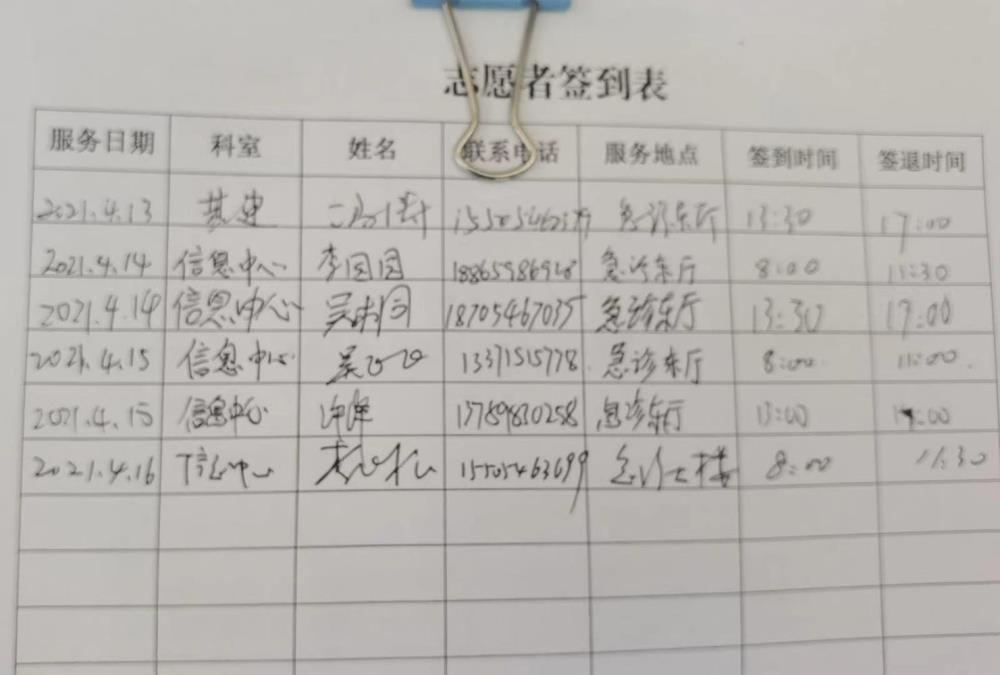 志愿者签到表
服务日期 科室 姓名 联系电话 服务地点 签到时间 签退时间
2021.4.13 基建 急诊东厅 13:30 17:00
2021.4.14 信息中心 李园园 急诊东厅 8:00 11:30
2021.4.14 信息中心 18705467035 急诊东厅 13:30 17:00
2021.4.15 信息中心 13371515778 急诊东厅 8:00 11:00
2021.4.15 信息中心 13789830258 急诊东厅 13:00
2021.4.16 信息中心 15505463699 8:00 11:30